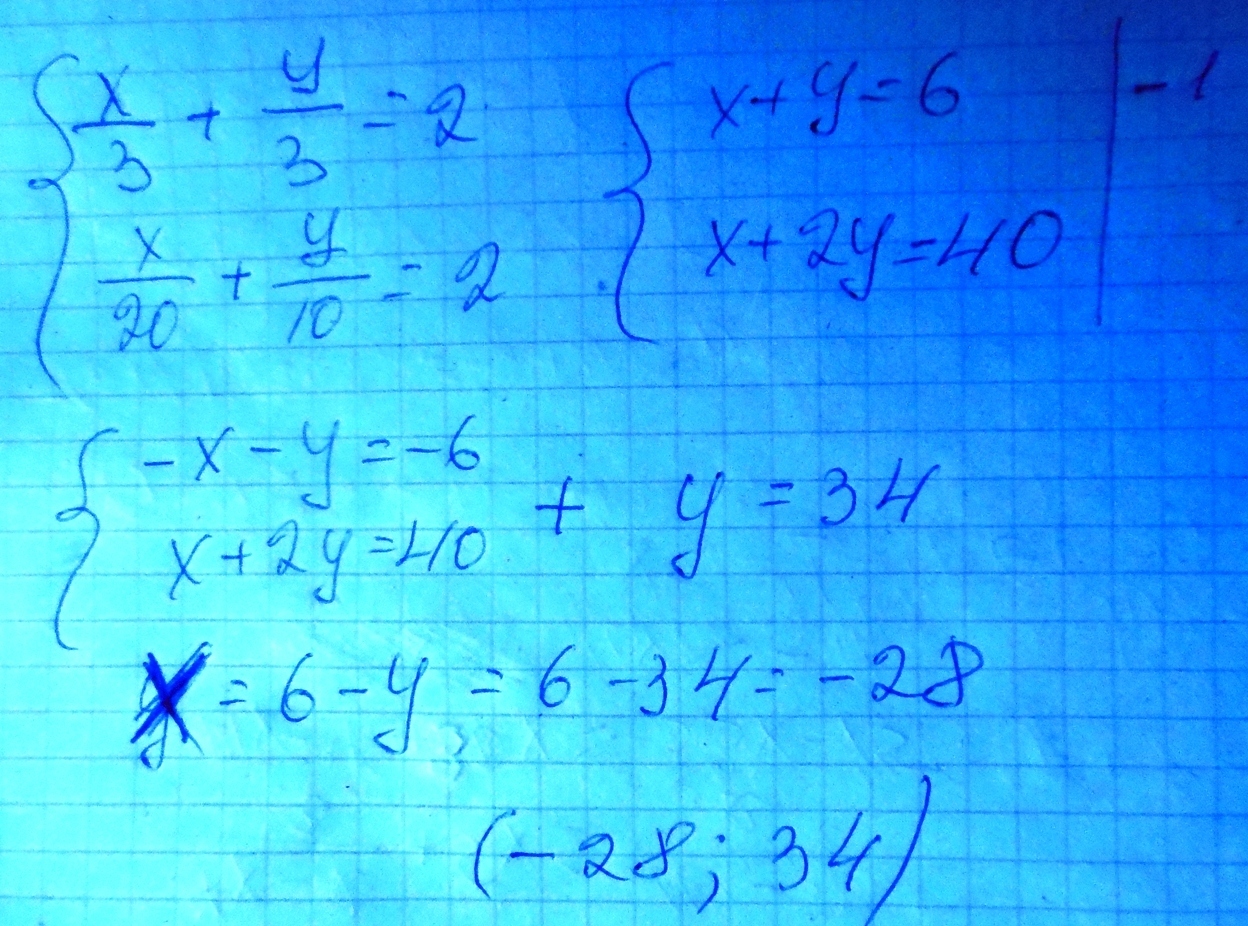 x/3 + y/3 = 2
x/20 + y/10 = 2
x+y=6 | -1
x+2y=40
-x-y=-6
x+2y=40
+ y=34
x=6-y=6-34=-28
(-28; 34)